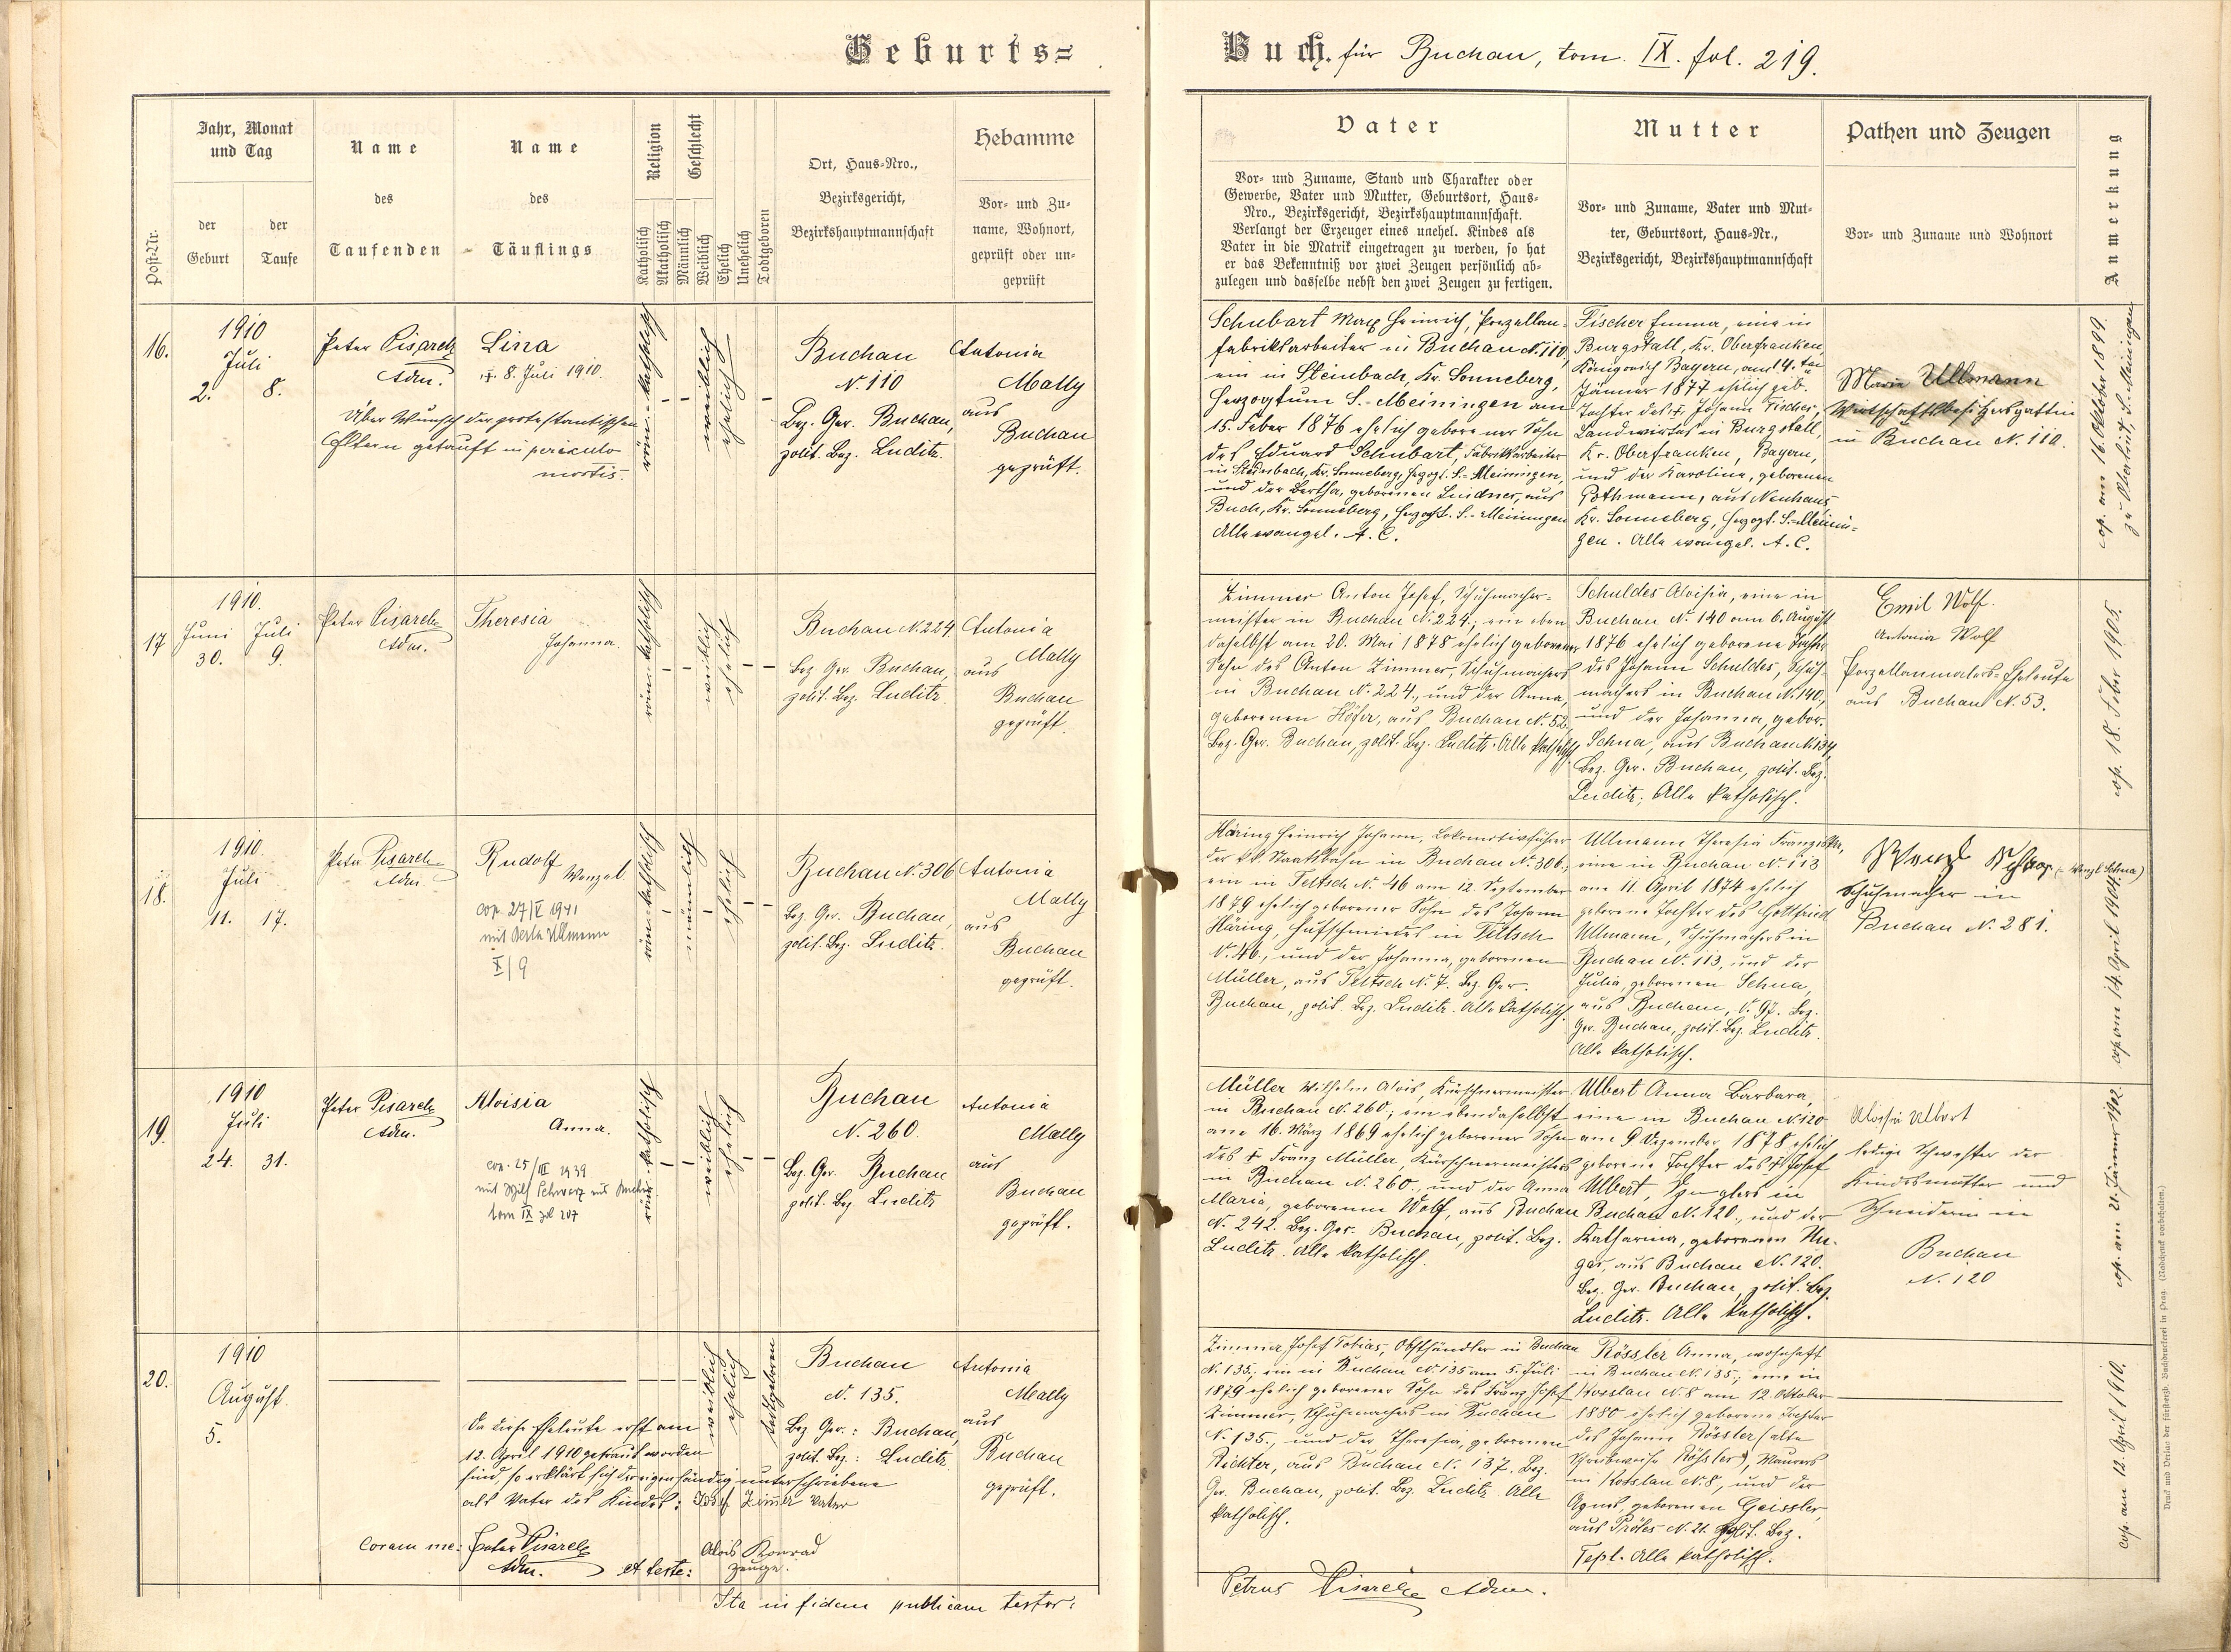 Geburts=
Buch. für Buchau, tom. IX. fol. 219.
Post-Nr.
Jahr, Monat
und Tag
der
Geburt
der
Taufe
Name
des
Taufenden
Name
des
Täuflings
Religion
Katholisch
Akatholisch
Geschlecht
Männlich
Weiblich
Ehelich
Unehelich
Todtgeboren
Ort, Haus-Nro.,
Bezirksgericht,
Bezirkshauptmannschaft
Hebamme
Vor- und Zu-
name, Wohnort,
geprüft oder un-
geprüft
Vater
Vor- und Zuname, Stand und Charakter oder
Gewerbe, Vater und Mutter, Geburtsort, Haus-
Nro., Bezirksgericht, Bezirkshauptmannschaft.
Verlangt der Erzeuger eines unehel. Kindes als
Vater in die Matrik eingetragen zu werden, so hat
er das Bekenntniß vor zwei Zeugen persönlich ab-
zulegen und dasselbe nebst den zwei Zeugen zu fertigen.
Mutter
Vor- und Zuname, Vater und Mut-
ter, Geburtsort, Haus-Nr.,
Bezirksgericht, Bezirkshauptmannschaft
Pathen und Zeugen
Vor- und Zuname und Wohnort
Anmerkung
16.
1910
Juli
2. 8.
Peter Pisarek
Adm.
Lina
✝. 8. Juli 1910.
Über Wunsch der protestantischen
Eltern getauft in periculo
mortis.
röm.-katholisch
weiblich
ehelich
Buchau
N. 110
Bez. Ger. Buchau,
polit. Bez. Luditz.
Antonia
Mally
aus
Buchau
geprüft.
Schubart Max Heinrich, Porzellan-
fabriksarbeiter in Buchau N. 110,
ein in Steinbach, Kr. Sonneberg,
Herzogtum S.-Meiningen am
15. Feber 1876 ehelich geborener Sohn
des Eduard Schubart, Fabriksarbeiter
in Steinbach, Kr. Sonneberg, Herzogt. S.-Meiningen,
und der Bertha, geborenen Lindner, aus
Buch, Kr. Sonneberg, Herzogt. S.-Meiningen
Alle evangel. A. C.
Fischer Emma, eine in
Burgstall, Kr. Oberfranken,
Königreich Bayern, am 14. ten
Jänner 1877 ehelich geb.
Tochter des ✝ Johann Fischer,
Landwirtes in Burgstall,
Kr. Oberfranken, Bayern,
und der Karolina, geborenen
Gothmann, aus Neuhaus,
Kr. Sonneberg, Herzogt. S.-Meinin-
gen. Alle evangel. A. C.
Marie Ullmann
Wirtschaftsbesitzersgattin
in Buchau N. 110.
cop. am 16. Oktober 1899.
zu Oberlind, S. Meiningen
17
1910.
Juni Juli
30. 9.
Peter Pisarek
Adm.
Theresia
Johanna.
röm.-katholisch
weiblich
ehelich
Buchau N. 224
Bez. Ger. Buchau,
polit. Bez. Luditz.
Antonia
Mally
aus
Buchau
geprüft.
Zimmer Anton Josef, Schuhmacher-
meister in Buchau N. 224.; ein eben
daselbst am 20. Mai 1878 ehelich geborener
Sohn des Anton Zimmer, Schuhmachers
in Buchau N. 224., und der Anna,
geborenen Höfer, aus Buchau N. 52.
Bez. Ger. Buchau, polit. Bez. Luditz. Alle katholisch.
Schuldes Aloisia, eine in
Buchau N. 140 am 6. August
1876 ehelich geborene Tochter
des Johann Schuldes, Schuh-
machers in Buchau N. 140,
und der Johanna, gebor.
Schna, aus Buchau N. 134,
Bez. Ger. Buchau, polit. Bez.
Luditz; Alle katholisch.
Emil Wolf.
Antonia Wolf
Porzellanmalers-Eheleute
aus Buchau N. 53.
cop. 18. Feber 1905.
18.
1910.
Juli
11. 17.
Peter Pisarek
Adm
Rudolf
Wenzel
cop. 27/V 1941
mit Ullmann
X/9
röm.-katholisch
männlich
ehelich
Buchau N. 306
Bez. Ger. Buchau,
polit. Bez. Luditz.
Antonia
Mally
aus
Buchau
geprüft.
Häring Heinrich Johann, Lokomotivführer
der k.k. Staatsbahn in Buchau N. 306.;
ein in Teltsch N. 46 am 12. September
1879 ehelich geborener Sohn des Johann
Häring, Hufschmiedes in Teltsch
N. 46., und der Johanna, geborenen
Müller, aus Teltsch N. 7. Bez. Ger.
Buchau, polit. Bez. Luditz. Alle katholisch.
Ullmann Theresia Franziska,
eine in Buchau N. 113
am 11. April 1874 ehelich
geborene Tochter des Gottfried
Ullmann, Schuhmachers in
Buchau N. 113, und der
Julia, geborenen Schna,
aus Buchau, N. 97. Bez.
Ger. Buchau, polit. Bez. Luditz.
Alle katholisch.
Wenzl (= Wenzl Schna)
Schuhmacher in
Buchau N. 281.
cop. am 14. April 1904.
19.
1910
Juli
24. 31.
Peter Pisarek
Adm.
Aloisia
Anna.
cop. 25/III 1939
mit Schwarz aus Buchau
tom IX fol 207
röm.-katholisch
weiblich
ehelich
Buchau
N. 260.
Bez. Ger. Buchau
polit. Bez. Luditz
Antonia
Mally
aus
Buchau
geprüft.
Müller Wilhelm Alois, Kürschnermeister
in Buchau N. 260; ein ebendaselbst
am 16. März 1869 ehelich geborener Sohn
des ✝ Franz Müller, Kürschnermeisters
in Buchau N. 260., und der Anna
Maria, geborenen Wolf, aus Buchau
N. 242. Bez. Ger. Buchau, polit. Bez.
Luditz. Alle katholisch.
Ulbert Anna Barbara,
eine in Buchau N. 120
am 9 Dezember 1878 ehelich
geborene Tochter des ✝ Josef
Ulbert, Spenglers in
Buchau N. 120., und der
Katharina, geborenen Un-
ger, aus Buchau N. 120.
Bez. Ger. Buchau, polit. Bez.
Luditz. Alle katholisch.
Aloisia Ulbert
ledige Schwester der
Kindesmutter und
Schneiderin in
Buchau
N. 120
cop. am 21. Jänner 1902.
20.
1910
August
5.
weiblich
ehelich
todtgeboren
Da diese Eheleute erst am
12. April 1910 getraut worden
sind, so erklärt sich der eigenhändig unterschriebene
als Vater des Kindes: Josef Zimmer Vater
Coram me: Peter Pisarek
Adm. et teste:
Alois Konrad
Zeuge.
Buchau
N. 135.
Bez Ger.: Buchau,
polit. Bez.: Luditz
Antonia
Mally
aus
Buchau
geprüft.
Zimmer Josef Tobias, Obsthändler in Buchau
N. 135.; ein in Buchau N. 135 am 5. Juli
1879 ehelich geborener Sohn des Franz Josef
Zimmer, Schuhmachers in Buchau
N. 135., und der Theresia, geborenen
Richter, aus Buchau N. 137. Bez.
Ger. Buchau, polit. Bez. Luditz. Alle
katholisch.
Rössler Anna, wohnhaft
in Buchau N. 135.; eine in
Kosslau N. 8 am 12. Oktober
1880 ehelich geborene Tochter
des Johann Rössler (alte
Schreibweise Rößler), Maurers
in Kosslau N. 8, und der
Agnes, geborenen Geissler,
aus Proles N. 21. Polit. Bez.
Tepl. Alle katholisch.
cop. am 12. April 1910.
Ita in fidem publicam testor:
Petrus Pisarek Adm.
Druck und Verlag der fürsterzb. Buchdruckerei in Prag. (Nachdruck vorbehalten.)